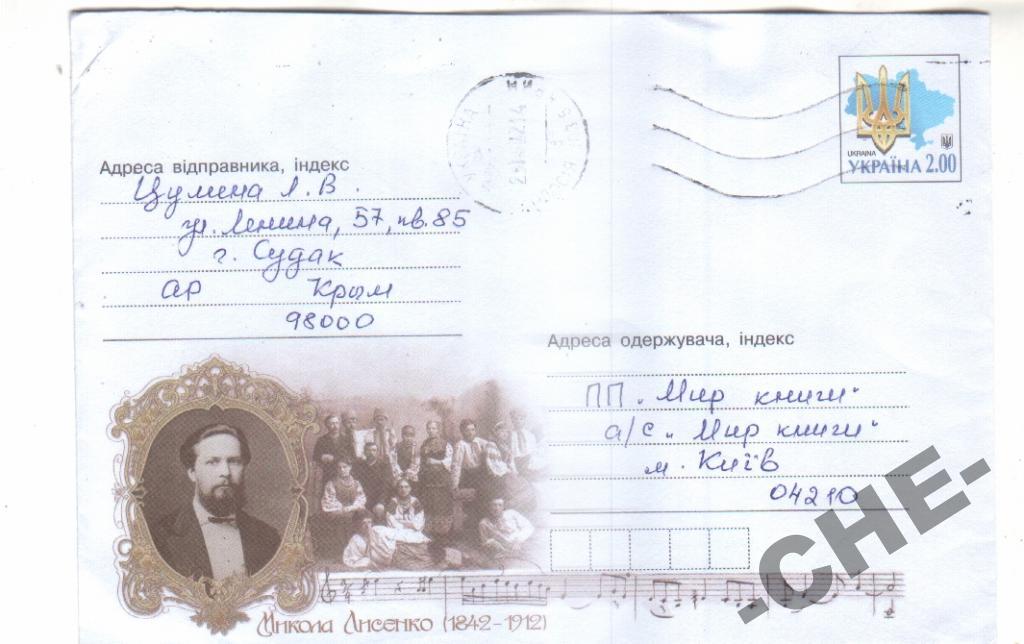 UKRAINA
УКРАЇНА 2.00
Адреса відправника, індекс
Цумина Л. В.
ул. Ленина, 57, кв. 85
г. Судак
АР Крым
98000
Адреса одержувача, індекс
ПП „Мир книги"
а/с „Мир книги"
м. Київ
04210
-CHE-
Микола Лисенко (1842-1912)